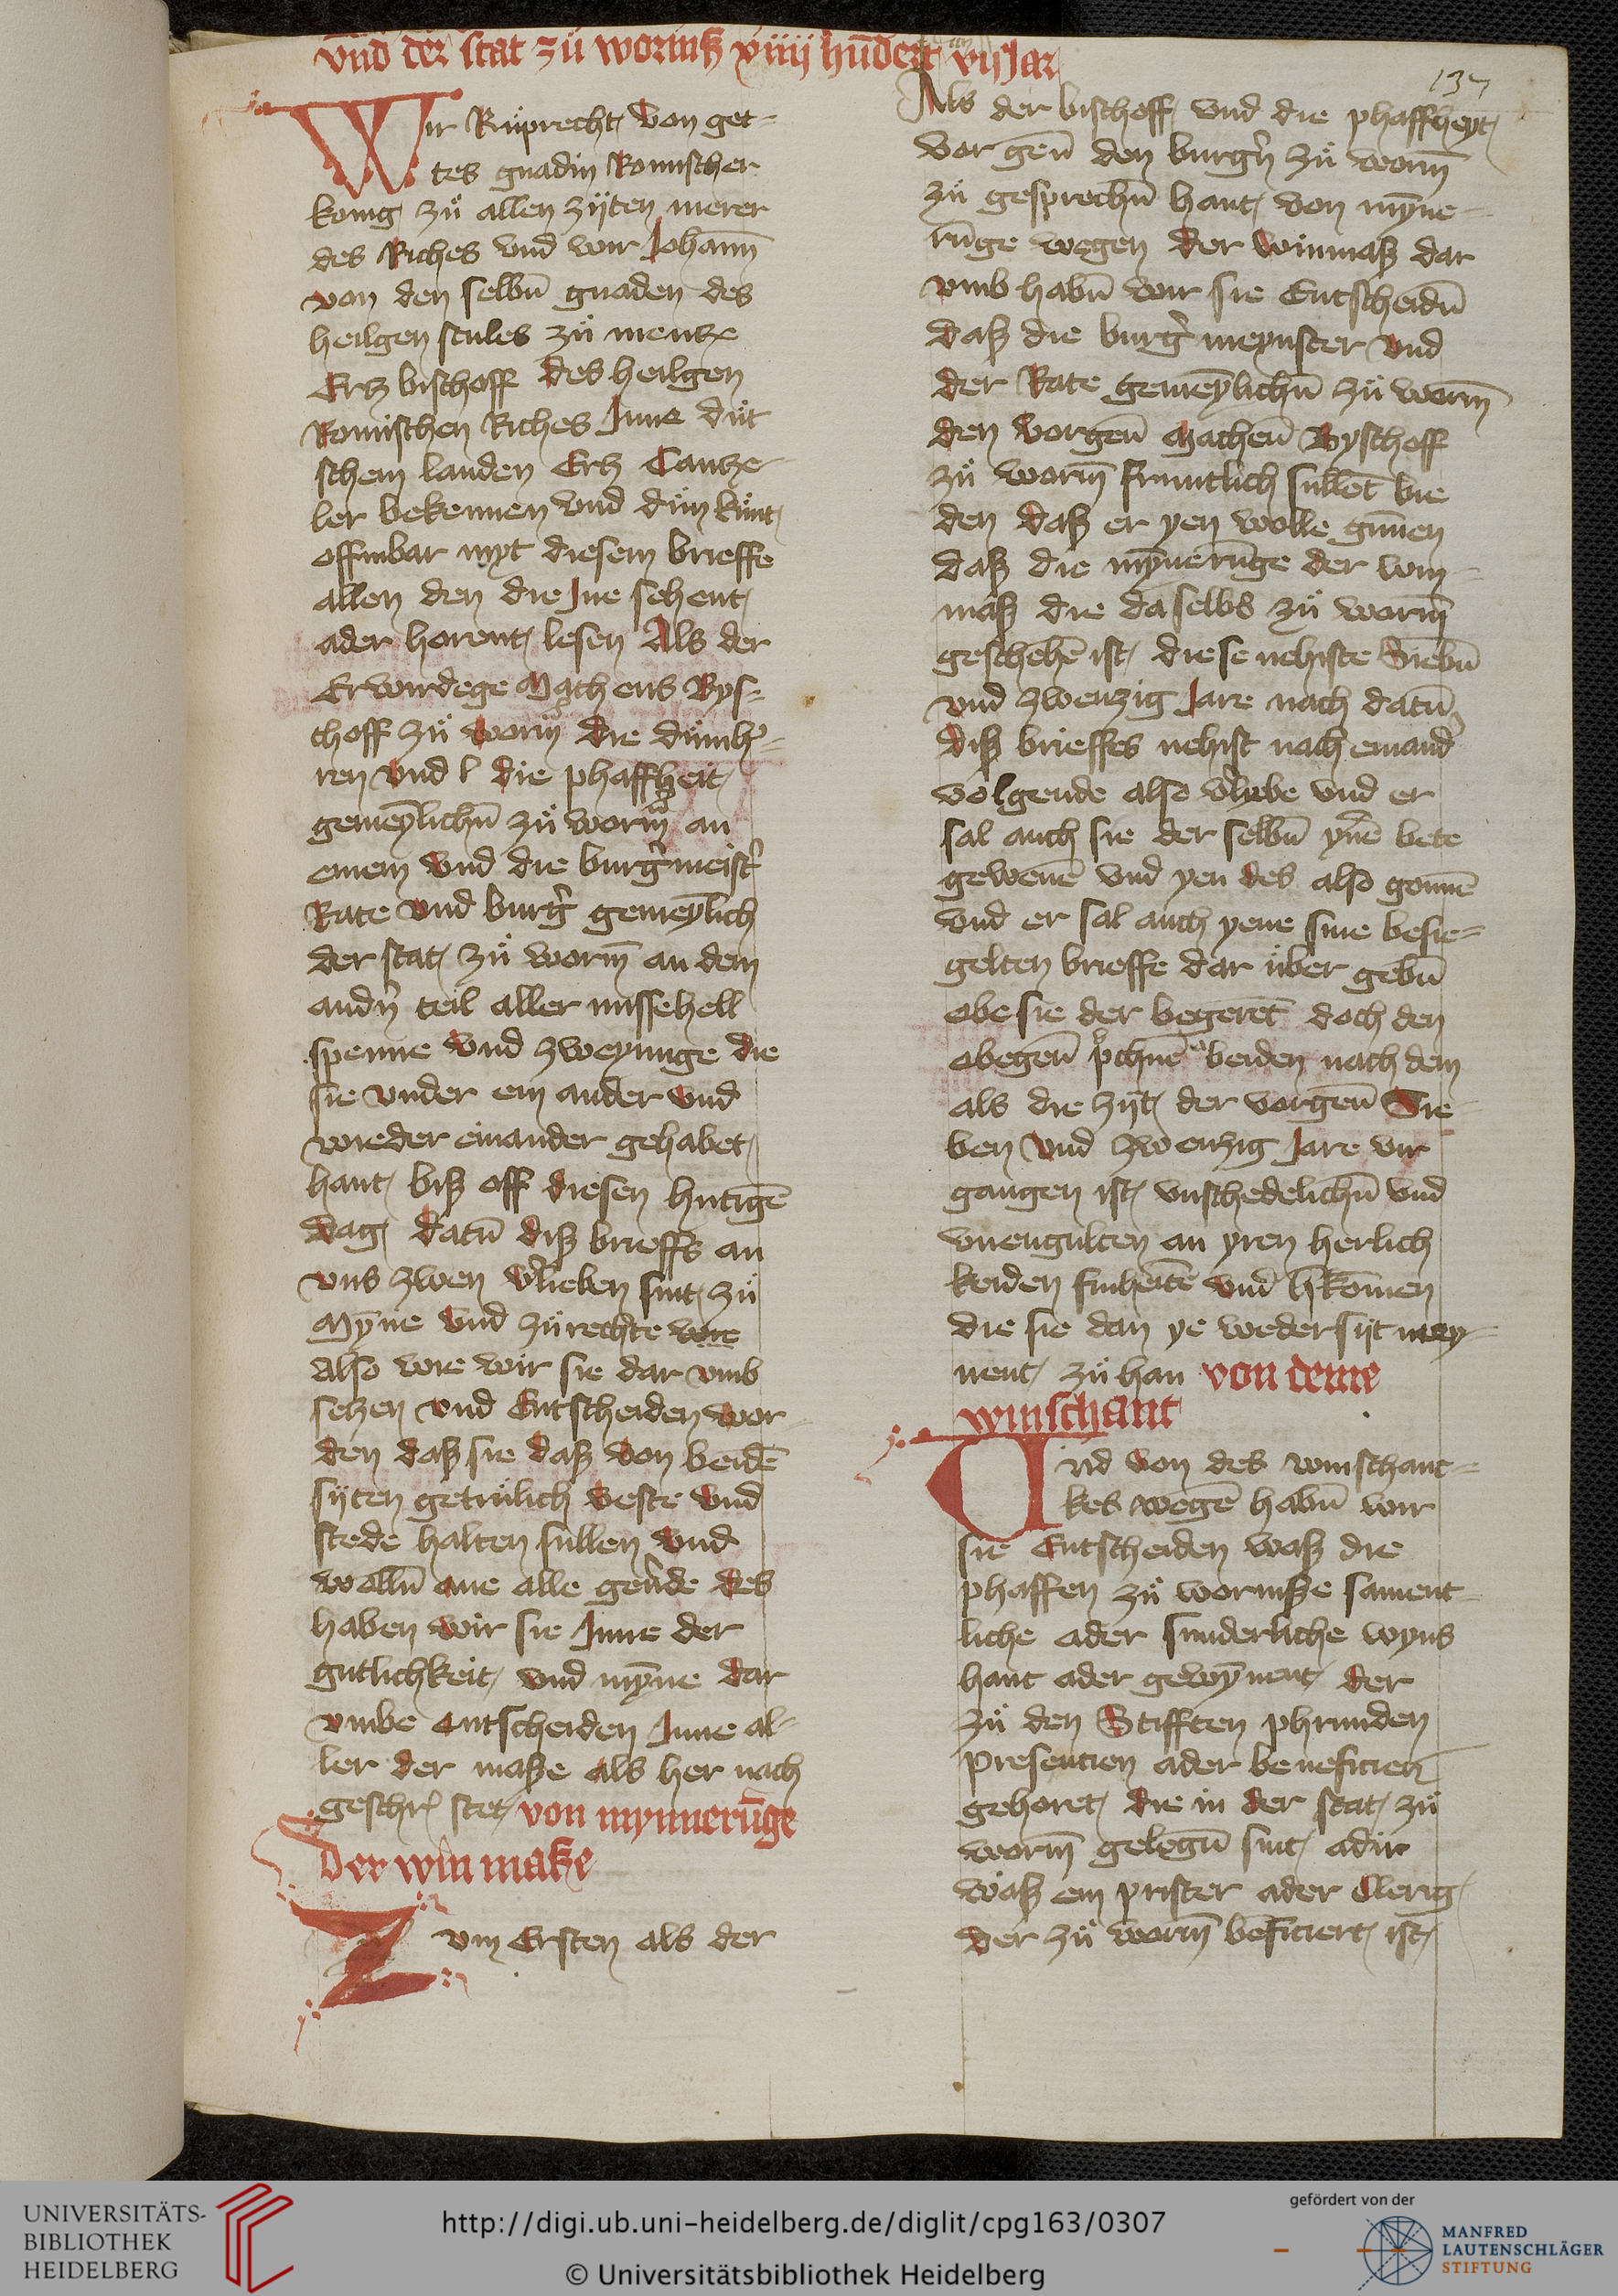 vnd der stat zů wormß xiiij hundert vij Jar
137
Wir Ruprecht von got-
tes gnadin Romischer
konig zů allen zijten merer
des Riches vnd wir Johann̄
von den selbn̄ gnaden des
heilgen stules zů mentze
Ertz bischoff des heilgen
Romischen Riches Inne dút
schem landen Ertz Cantze-
ler bekennen vnd důn kůnt
offinbar myt diesem brieffe
allen den die Ine sehent
ader horent lesen Als der
Erwirdege Matheus Bys-
choff zů worm̄ die důmhˀ-
ren vnd die phaffheit
gemeynlichn̄ zů worm̄ an
einem vnd die burgˀmeistˀ
Rate vnd burgˀ gemeynlich
der stat zů worm̄ an dem
andˀn teil aller missehell
spenne vnd zweyunge die
sie vnder ein ander vnd
wieder einander gehabet
hant biß off diesen hutigē
dag datū diß brieffs an
vns zwen vˀlieben sint zů
Myn̄e vnd zů rechte wie
Also wie wir sie dar vmb
setzen vnd Entscheiden wor-
den daß sie daß von beidē
sijten getrulich veste vnd
stede halten sullen vnd
wolln̄ ane alle geuˀde des
haben wir sie Inne der
gutlichkeit vnd myn̄e dar
vmbe entscheiden Inne al-
ler der maße als her nach
geschrˀ stet von mynnerūge
der win maße
Zum Ersten als der
Als der bischoff vnd die phaffheyt
vorgen̄ den burgˀn zů worm̄
zů gesprochn̄ hant von myn̄e-
rūge wegen der winmaß dar
vmb habn̄ wir sie Entscheidn̄
daß die burgˀ meynster vnd
der Rate gemeynlichn̄ zů worm̄
den vorgen̄ Matheū Byschoff
zů worm̄ fruntlich sullēt bie
den daß er yen wolle gūnen
daß die myn̄erūge der win-
maß die da selbs zů worm̄
geschehē ist diese nehiste Siebn̄
vnd zwenzig Jare nach datū
diß brieffes nehist nach einandˀ
volgende also vˀliebe vnd er
sal auch sie der selbn̄ yrē bete
gewerē vnd yen des also gonnē
vnd er sal auch yene sine besie-
gelten brieffe dar über gebn̄
obe sie der begerēt doch den
obegen̄ beiden nach dem
als die zijt der vorgen̄ Sie-
ben vnd zwenzig Jare vir
gangen ist vnschedelichn̄ vnd
vnengulten an yren herlich
keiden friheitē vnd hˀkomen
die sie dan ye wedersijt mey-
nent zů han von deme
winschant
Vnd von des winschant-
kes wegē habn̄ wir
sie Entscheiden waß die
phaffen zů wormße sament-
liche ader sunderliche wyns
hant ader gewyn̄ent der
zů den Stifften phrunden
presencien ader beneficien
gehoret die in der stat zů
worm̄ gelegn̄ sint adir
waß ein prister ader Clerig
der zů worm̄ beficiert ist
UNIVERSITÄTS-
BIBLIOTHEK
HEIDELBERG
http://digi.ub.uni-heidelberg.de/diglit/cpg163/0307
© Universitätsbibliothek Heidelberg
gefördert von der
MANFRED
LAUTENSCHLÄGER
STIFTUNG